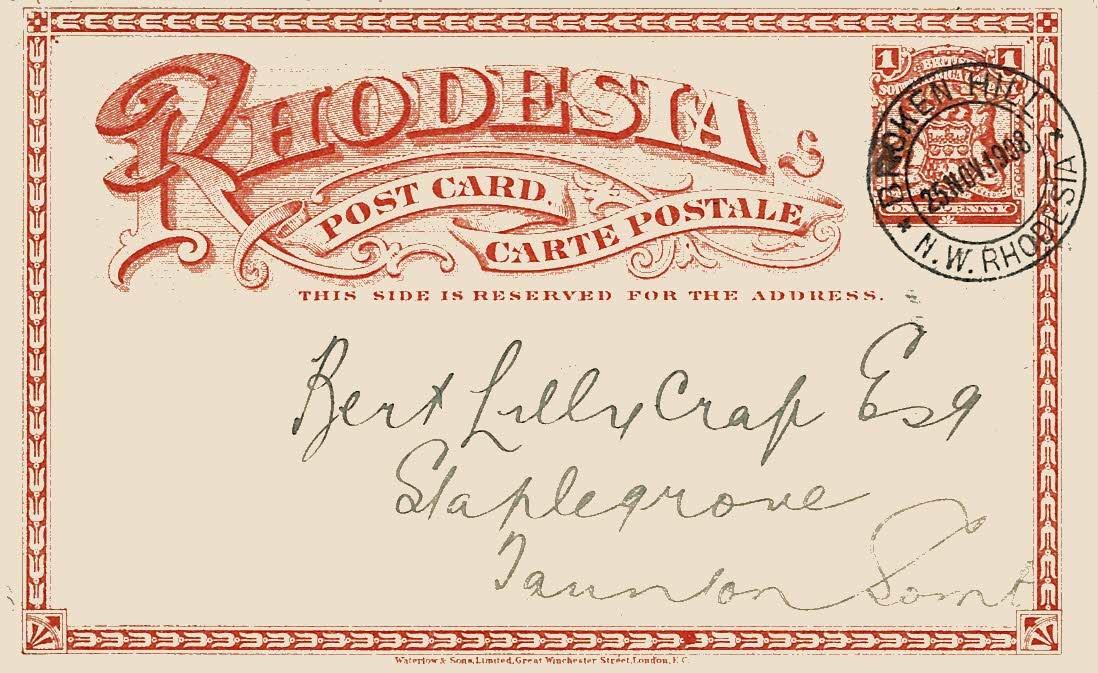 RHODESIA
POST CARD.
CARTE POSTALE
THIS SIDE IS RESERVED FOR THE ADDRESS.
1 BRITISH 1
SOUTH AFRICA
ONE PENNY
BROKEN HILL
25 NOV 1908
N.W. RHODESIA
Bert Lillycrap Esq
Staplegrove
Taunton Somt
Waterlow & Sons, Limited, Great Winchester Street, London, E.C.